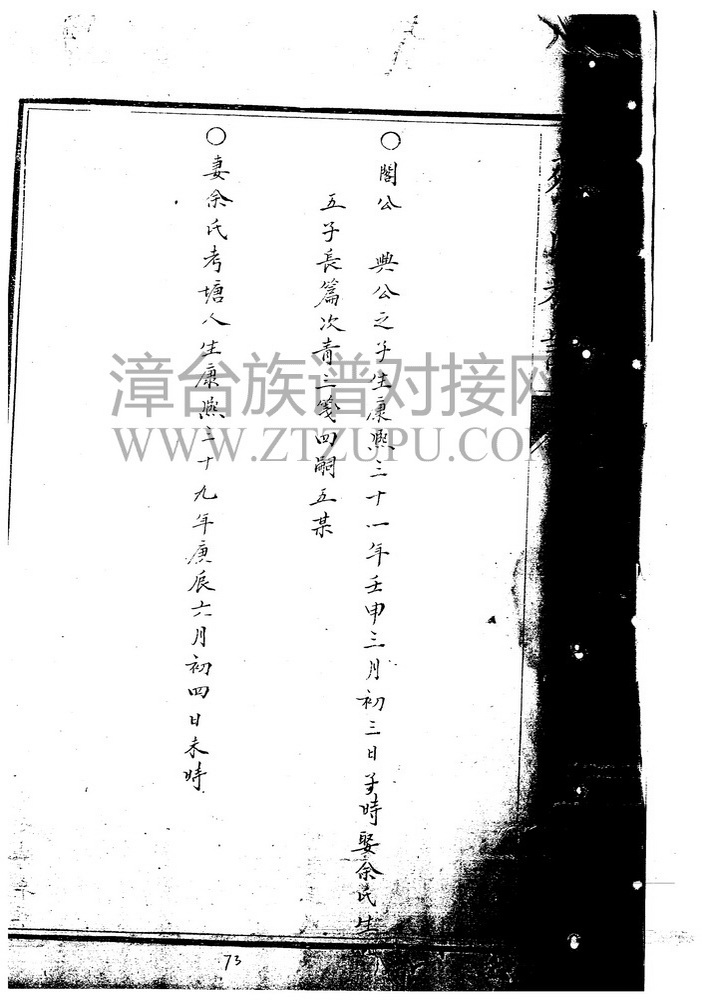 ○閣公 興公之子生康熙三十一年壬申三月初三日子時娶余氏生
五子長篇次青三箋四嗣五某
○妻余氏考塘人生康熙三十九年庚辰六月初四日未時
漳台族谱对接网
WWW.ZTZUPU.COM
73